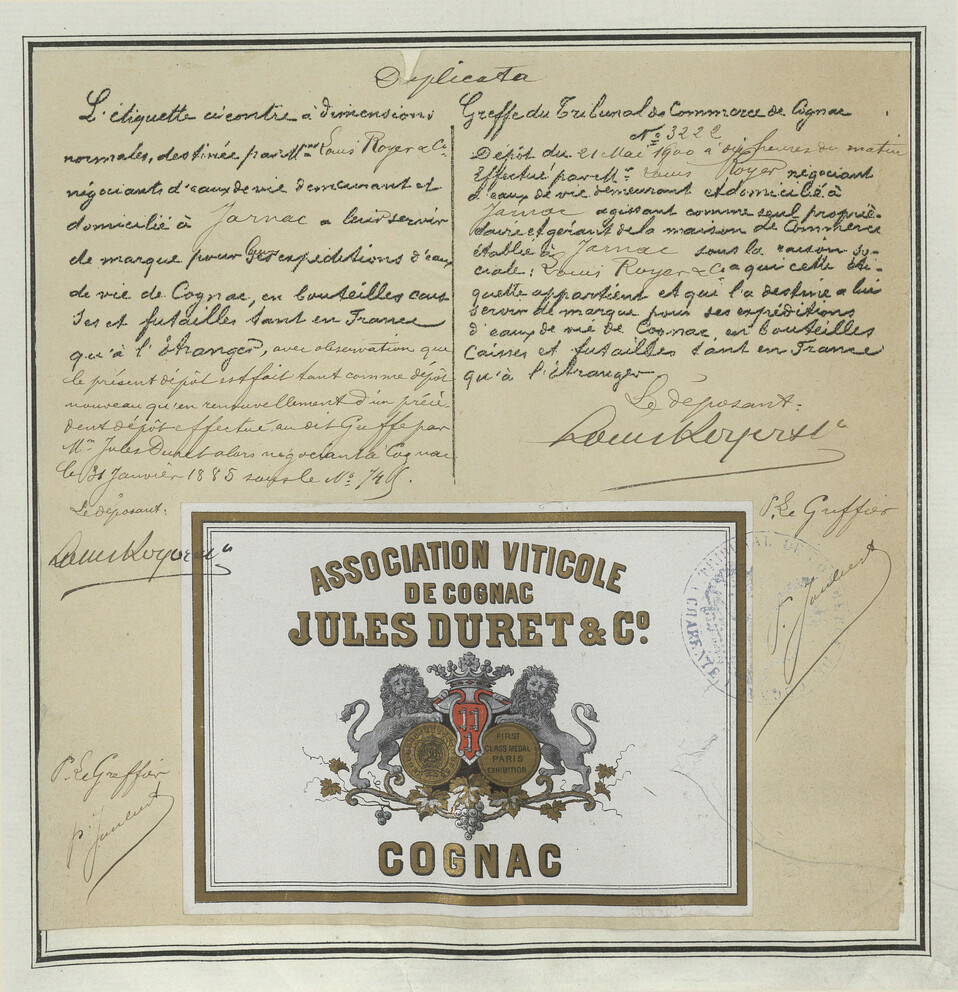 Duplicata
L'étiquette ci contre à dimensions
normales, destinée par Mrs Louis Royer & Cie
négociants d'eaux de vie demeurant et
domicilié à Jarnac a leur servir
de marque pour les expéditions d'eaux
de vie de Cognac, en bouteilles cais
ses et futailles tant en France
qu'à l'étranger, avec observation que
le présent dépôt est fait tant comme dépôt
nouveau qu'en renouvellement d'un précé-
dent dépôt effectué au dit Greffe par
Mr Jules Duret alors négociant à Cognac
le 31 Janvier 1885 sous le No 745.
Le déposant:
Louis Royer & Cie
P. Le Greffier
Greffe du Tribunal de Commerce de Cognac
No 3222
Dépôt du 21 Mai 1900 à dix heures du matin
Effectué par Mr Louis Royer négociant
d'eaux de vie demeurant et domicilié à
Jarnac agissant comme seul proprié-
taire et gérant de la maison de Commerce
établie à Jarnac sous la raison so-
ciale: Louis Royer & Cie a qui cette éti-
quette appartient et qui l'a destine a lui
servir de marque pour ses expéditions
d'eaux de vie de Cognac en bouteilles
Caisses et futailles tant en France
qu'à l'étranger
Le déposant:
Louis Royer & Cie
P. Le Greffier
TRIBUNAL DE
ASSOCIATION VITICOLE
DE COGNAC
JULES DURET & Co.
FIRST
CLASS MEDAL
PARIS
EXHIBITION
COGNAC